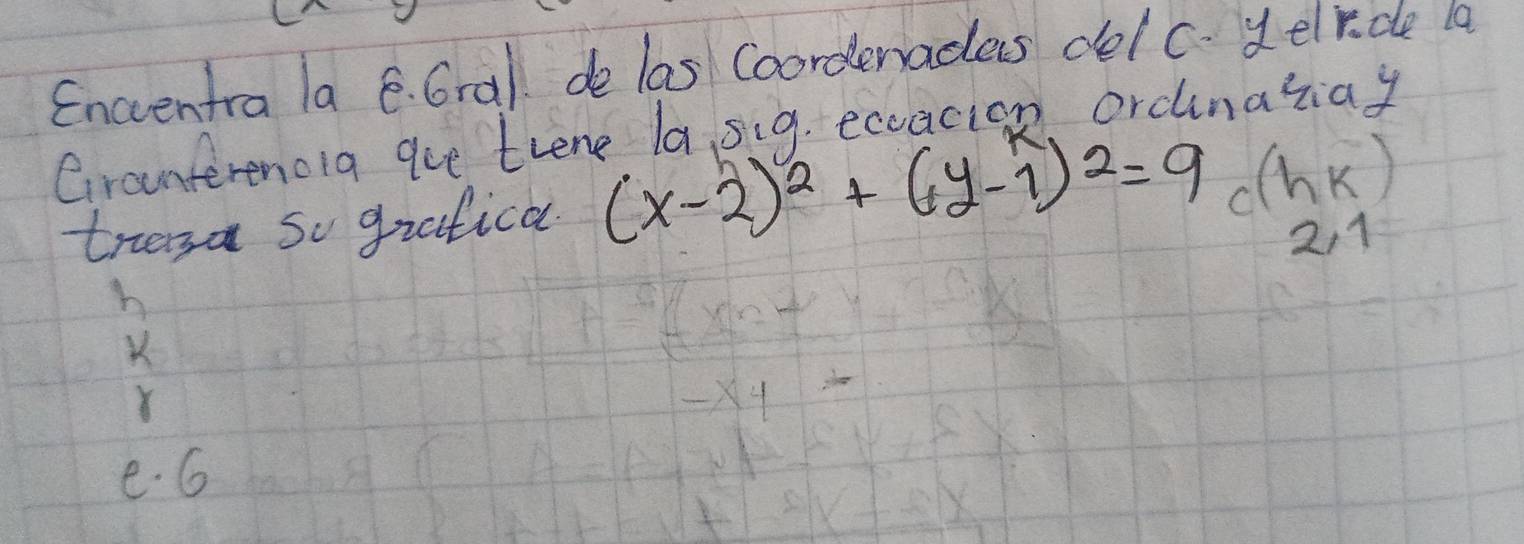 Encuentra la E. Gral. de las Coordenadas del C. y el r. de la
Circunferencia que tiene la sig. ecuacion ordinaria y
traza su grafica. (x-2)² + (y-1)² = 9 c(h K)
h K
2,1
h
K
r
-x4
e. G